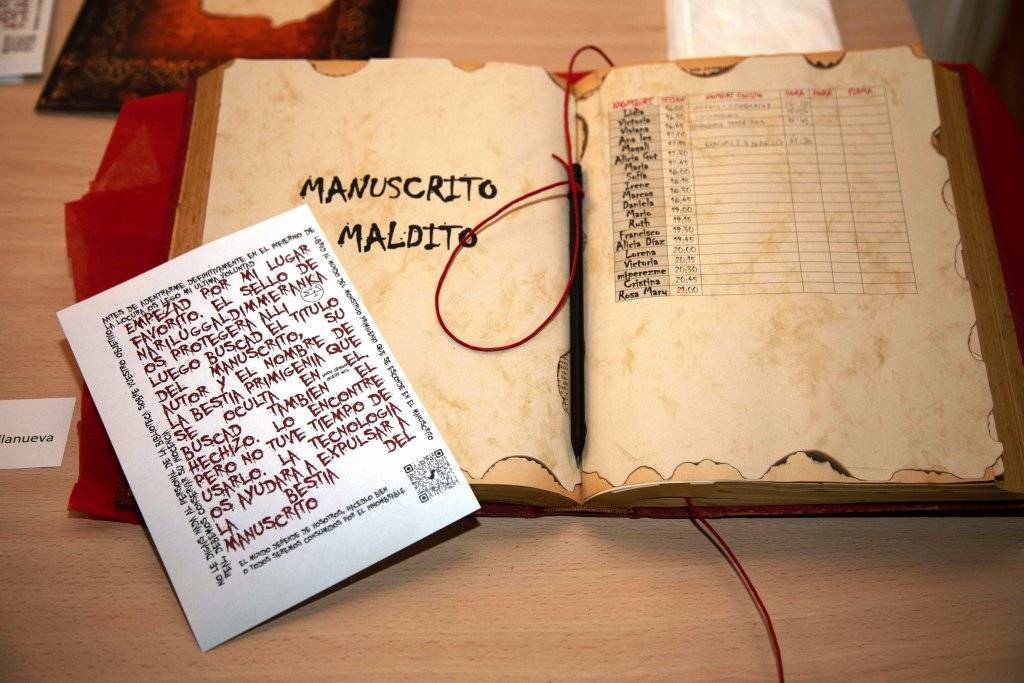 MANUSCRITO
MALDITO
ANTES DE ADENTRARME DEFINITIVAMENTE EN EL INFIERNO DE
LA LOCURA OS LEGO MI ULTIMA VOLUNTAD
EMPEZAD POR MI LUGAR
FAVORITO. EL SELLO DE
NARILUGGALDIMMERANKIA
OS PROTEGERA ALLI
LUEGO BUSCAD EL TITULO
DEL MANUSCRITO, SU
AUTOR Y EL NOMBRE DE
LA BESTIA PRIMIGENIA QUE
SE OCULTA EN EL
BUSCAD TAMBIEN EL
HECHIZO. LO ENCONTRE
PERO NO TUVE TIEMPO DE
USARLO. LA TECNOLOGIA
OS AYUDARA A EXPULSAR A
LA BESTIA DEL
MANUSCRITO
EL MUNDO DEPENDE DE VOSOTROS, HACEDLO BIEN
O TODOS SEREMOS CONSUMIDOS POR EL INNOMBRABLE
NOMBRE HORA HORA FIRMA
Lidia 16:00
Victoria 16:30
Viviana 16:45
Ana Isa 17:00
Magali 17:15
Alicia Gut 17:30
María 17:45
Sofía 18:00
Irene 18:15
Marcos 18:30
Daniela 18:45
Mario 19:00
Ruth 19:15
Francisco 19:30
Alicia Díaz 19:45
Lorena 20:00
Victoria 20:15
miperezme 20:30
Cristina 20:45
Rosa Mary 21:00
llanueva